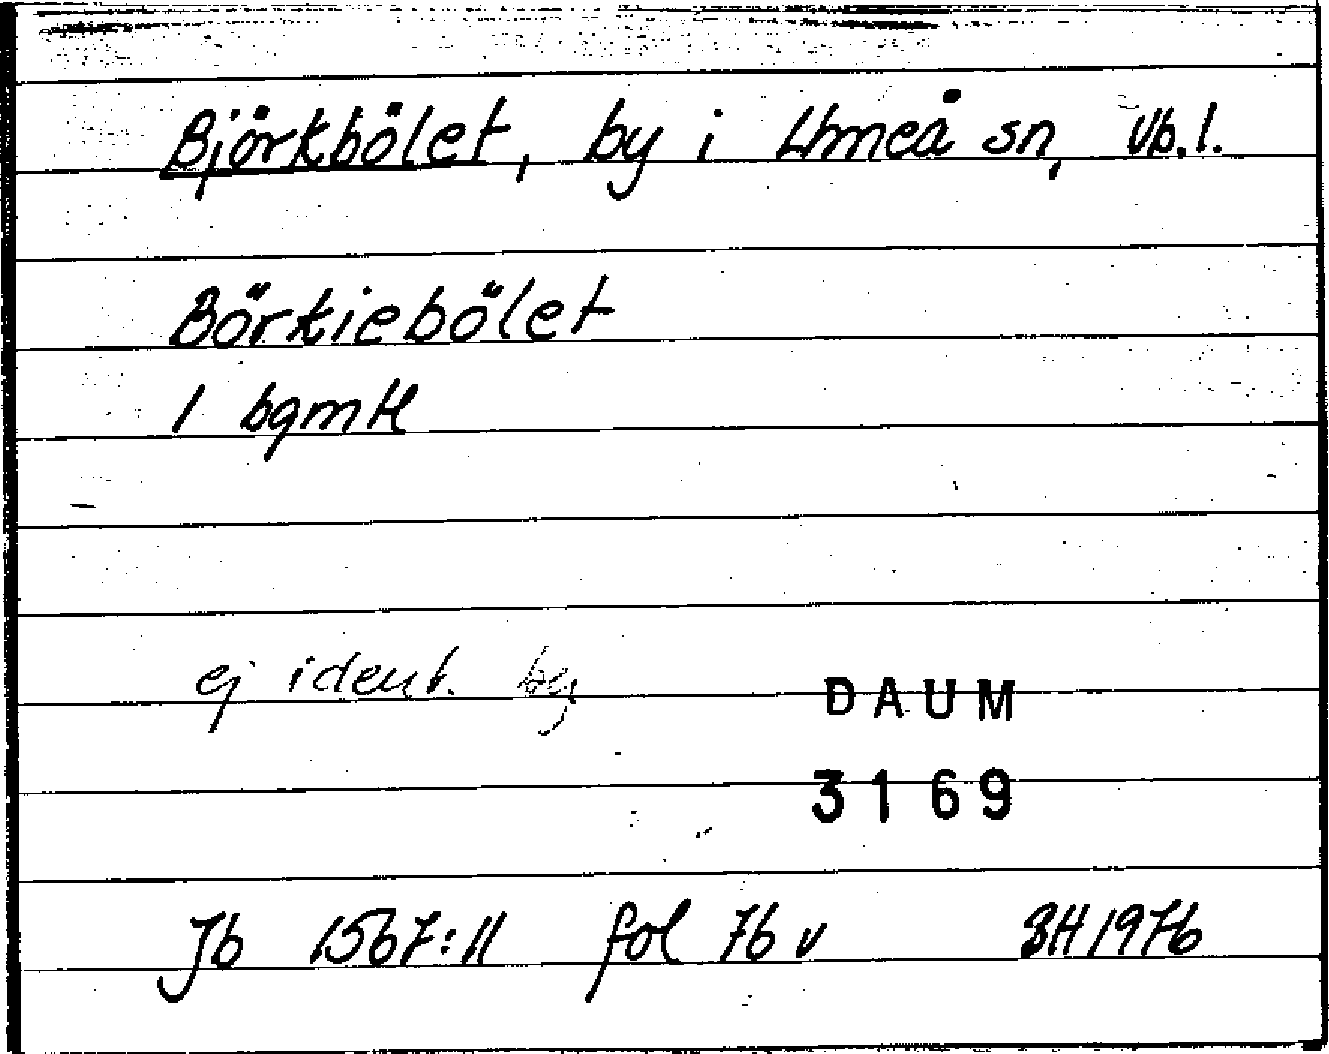 Björkbölet, by i Umeå sn, Vb.l.
Börkiebölet
1 bgmtl
ej ident. by
DAUM
3169
Jb 1567:11 fol 76 v BH 1976